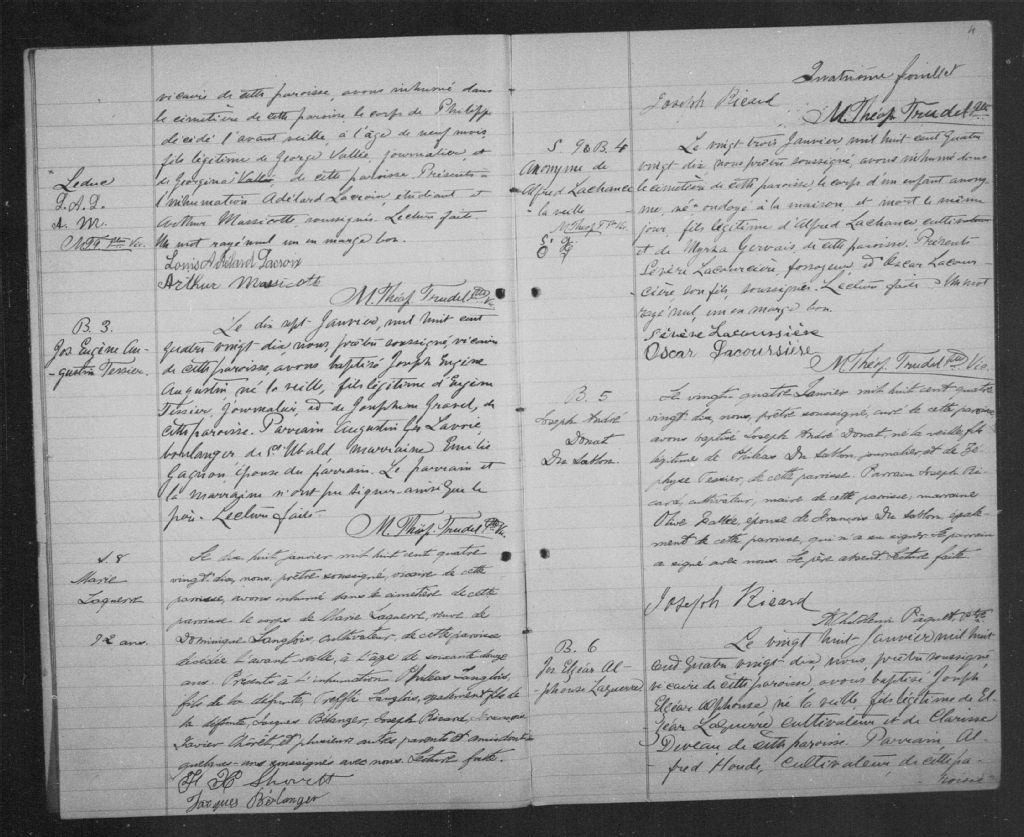 vicaire de cette paroisse, avons inhumé dans
le cimetière de cette paroisse le corps de Philippe
décédé l'avant veille, à l'âge de neuf mois,
fils légitime de George Vallée, journalier, et
de Georgina Vallée, de cette paroisse. Présents
l'inhumation Adélard Lacroix, étudiant et
Arthur Massicotte, soussignés. Lecture faite.
Un mot rayé nul un en marge bon.
Leduc
D. A. D.
A. M.
M T T Ptre Vic.
Louis Adélard Lacroix
Arthur Massicotte
M. Théop. Trudel Ptre Vic.
B. 3.
Jos Eugène Au-
gustin Tessier.
Le dix sept Janvier, mil huit cent
quatre vingt dix nous, prêtre soussigné, vicaire
de cette paroisse, avons baptisé Joseph Eugène
Augustin, né la veille, fils légitime d'Eugène
Tessier, journalier, et de Joséphine Gravel, de
cette paroisse. Parrain Augustin Lavoie,
boulanger de St Ubald marraine Emilie
Gagnon épouse du parrain. Le parrain et
la marraine n'ont pu signer ainsi que le
père. Lecture faite.
M. Théop. Trudel Ptre Vic.
S. 8
Marie
Laquerre
72 ans.
Le dix huit janvier mil huit cent quatre
vingt dix, nous, prêtre soussigné, vicaire de cette
paroisse, avons inhumé dans le cimetière de cette
paroisse le corps de Marie Laquerre, veuve de
Dominique Langlois, cultivateur, de cette paroisse
décédée l'avant veille, à l'âge de soixante douze
ans. Présents à l'inhumation Philéas Langlois,
fils de la défunte, Langlois, également fils de
la défunte, Jacques Bélanger, Joseph Ricard, François
Xavier Thorêt, et plusieurs autres parents et amis dont
quelques-uns soussignés avec nous. Lecture faite.
F. X. Shorett
Jacques Bélanger
4
Quatrième feuillet
Joseph Ricard
M. Théop. Trudel Ptre
S. 9 & B. 4
Anonyme de
Alfred Lachance
la veille
M. Théop T Ptre Vic.
Le vingt trois Janvier, mil huit cent quatre
vingt dix, nous prêtre soussigné, avons inhumé dans
le cimetière de cette paroisse le corps d'un enfant anony-
me, né ondoyé à la maison, et mort le même
jour, fils légitime d'Alfred Lachance cultivateur
et de Myrza Gervais de cette paroisse. Présents
Sévère Lacourcière, fossoyeur, et Oscar Lacour-
cière, son fils, soussignés. Lecture faite. Un mot
rayé nul, un en marge bon.
Sévère Lacoursière
Oscar Lacoursière
M. Théop. Trudel Ptre Vic.
B. 5
Joseph André
Donat
Du Sablon.
Le vingt-quatre Janvier mil huit cent quatre
vingt dix, nous, prêtre soussigné, curé de cette paroisse
avons baptisé Joseph André Donat, né la veille fils
légitime de Philéas Du Sablon, journalier et de Zé-
physe Tessier, de cette paroisse. Parrain Joseph Ri-
card, cultivateur, maire de cette paroisse, marraine
Olive Vallée, épouse de François Du Sablon, égale-
ment de cette paroisse, qui n'a su signer. Le parrain
a signé avec nous. Le père absent. Lecture faite
Joseph Ricard
Paquet, Ptre
B. 6
Jos Elzéar Al-
phonse Laquerre
Le vingt huit Janvier mil huit
cent quatre vingt dix, nous, prêtre soussigné,
vicaire de cette paroisse, avons baptisé Joseph
Elzéar Alphonse, né la veille, fils légitime de El-
zéar Laquerre cultivateur et de Clarisse
Deveau de cette paroisse. Parrain, Al-
fred Houde, cultivateur, de cette pa-
roisse